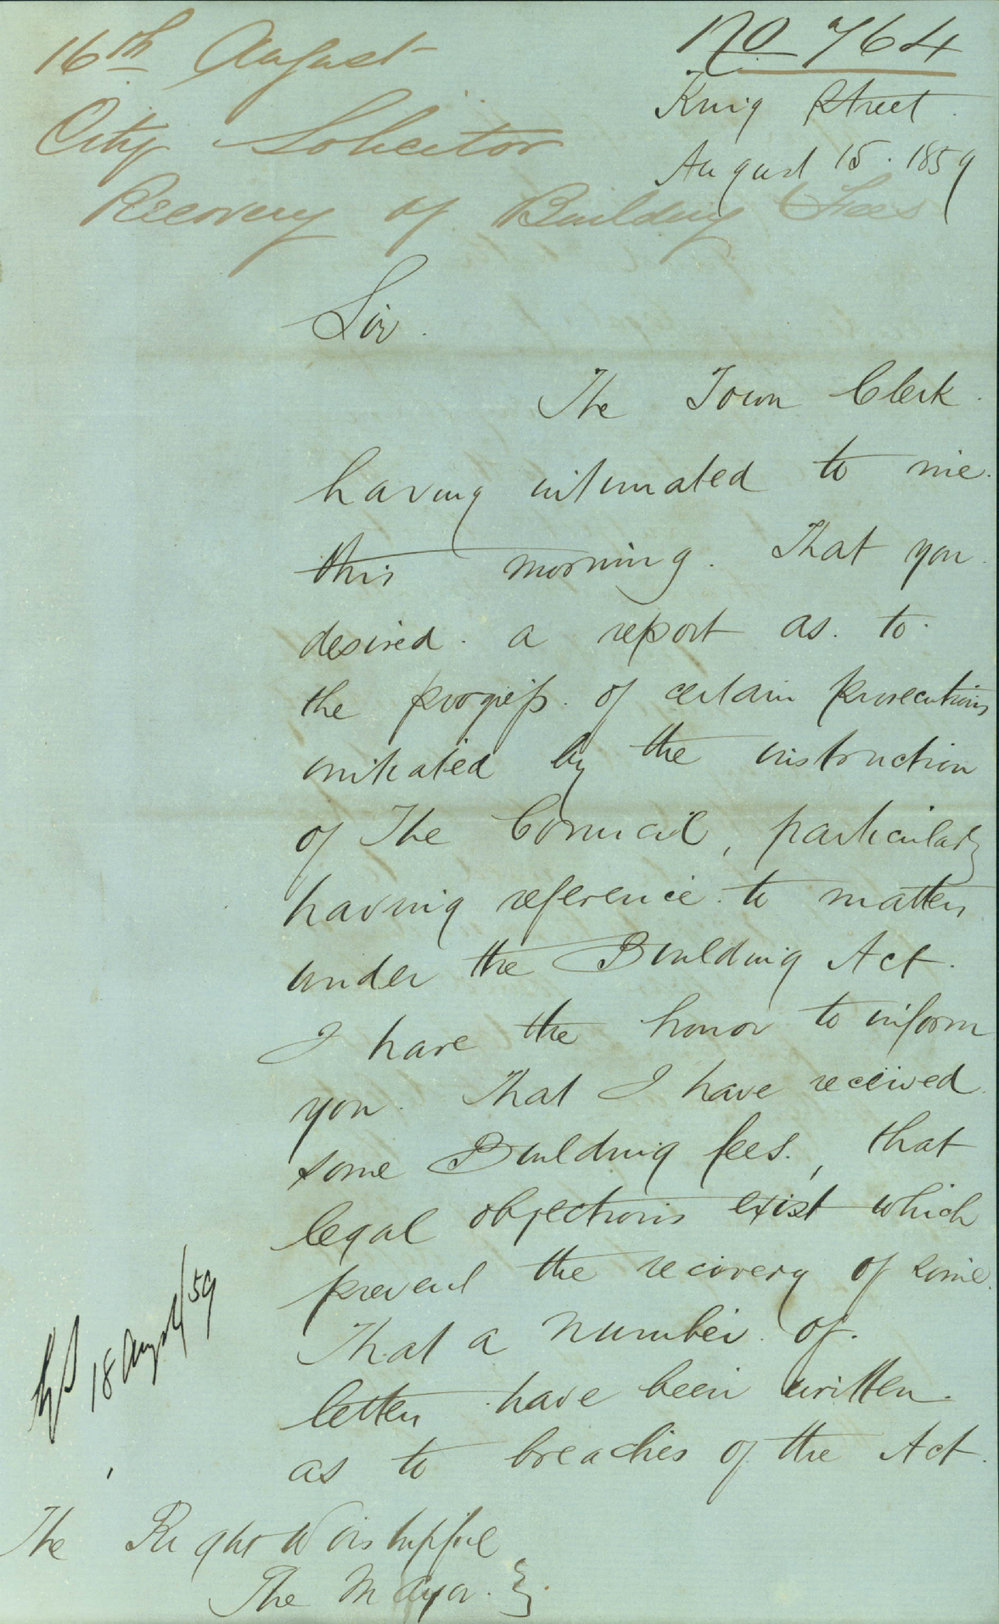 16th August
City Solicitor
Recovery of Building Fees
No 764
King Street
August 15. 1859
Sir
The Town Clerk
having intimated to me
this morning. That you
desired a report as to
the progress of certain prosecutions
initiated by the instruction
of The Council, particularly
having reference to matters
under the Building Act.
I have the honor to inform
you. That I have received
some Building fees, that
legal objections exist which
prevent the recovery of some.
That a number of
letters have been written
as to breaches of the Act.
18 Augst/59
The Right Worshipful
The Mayor.